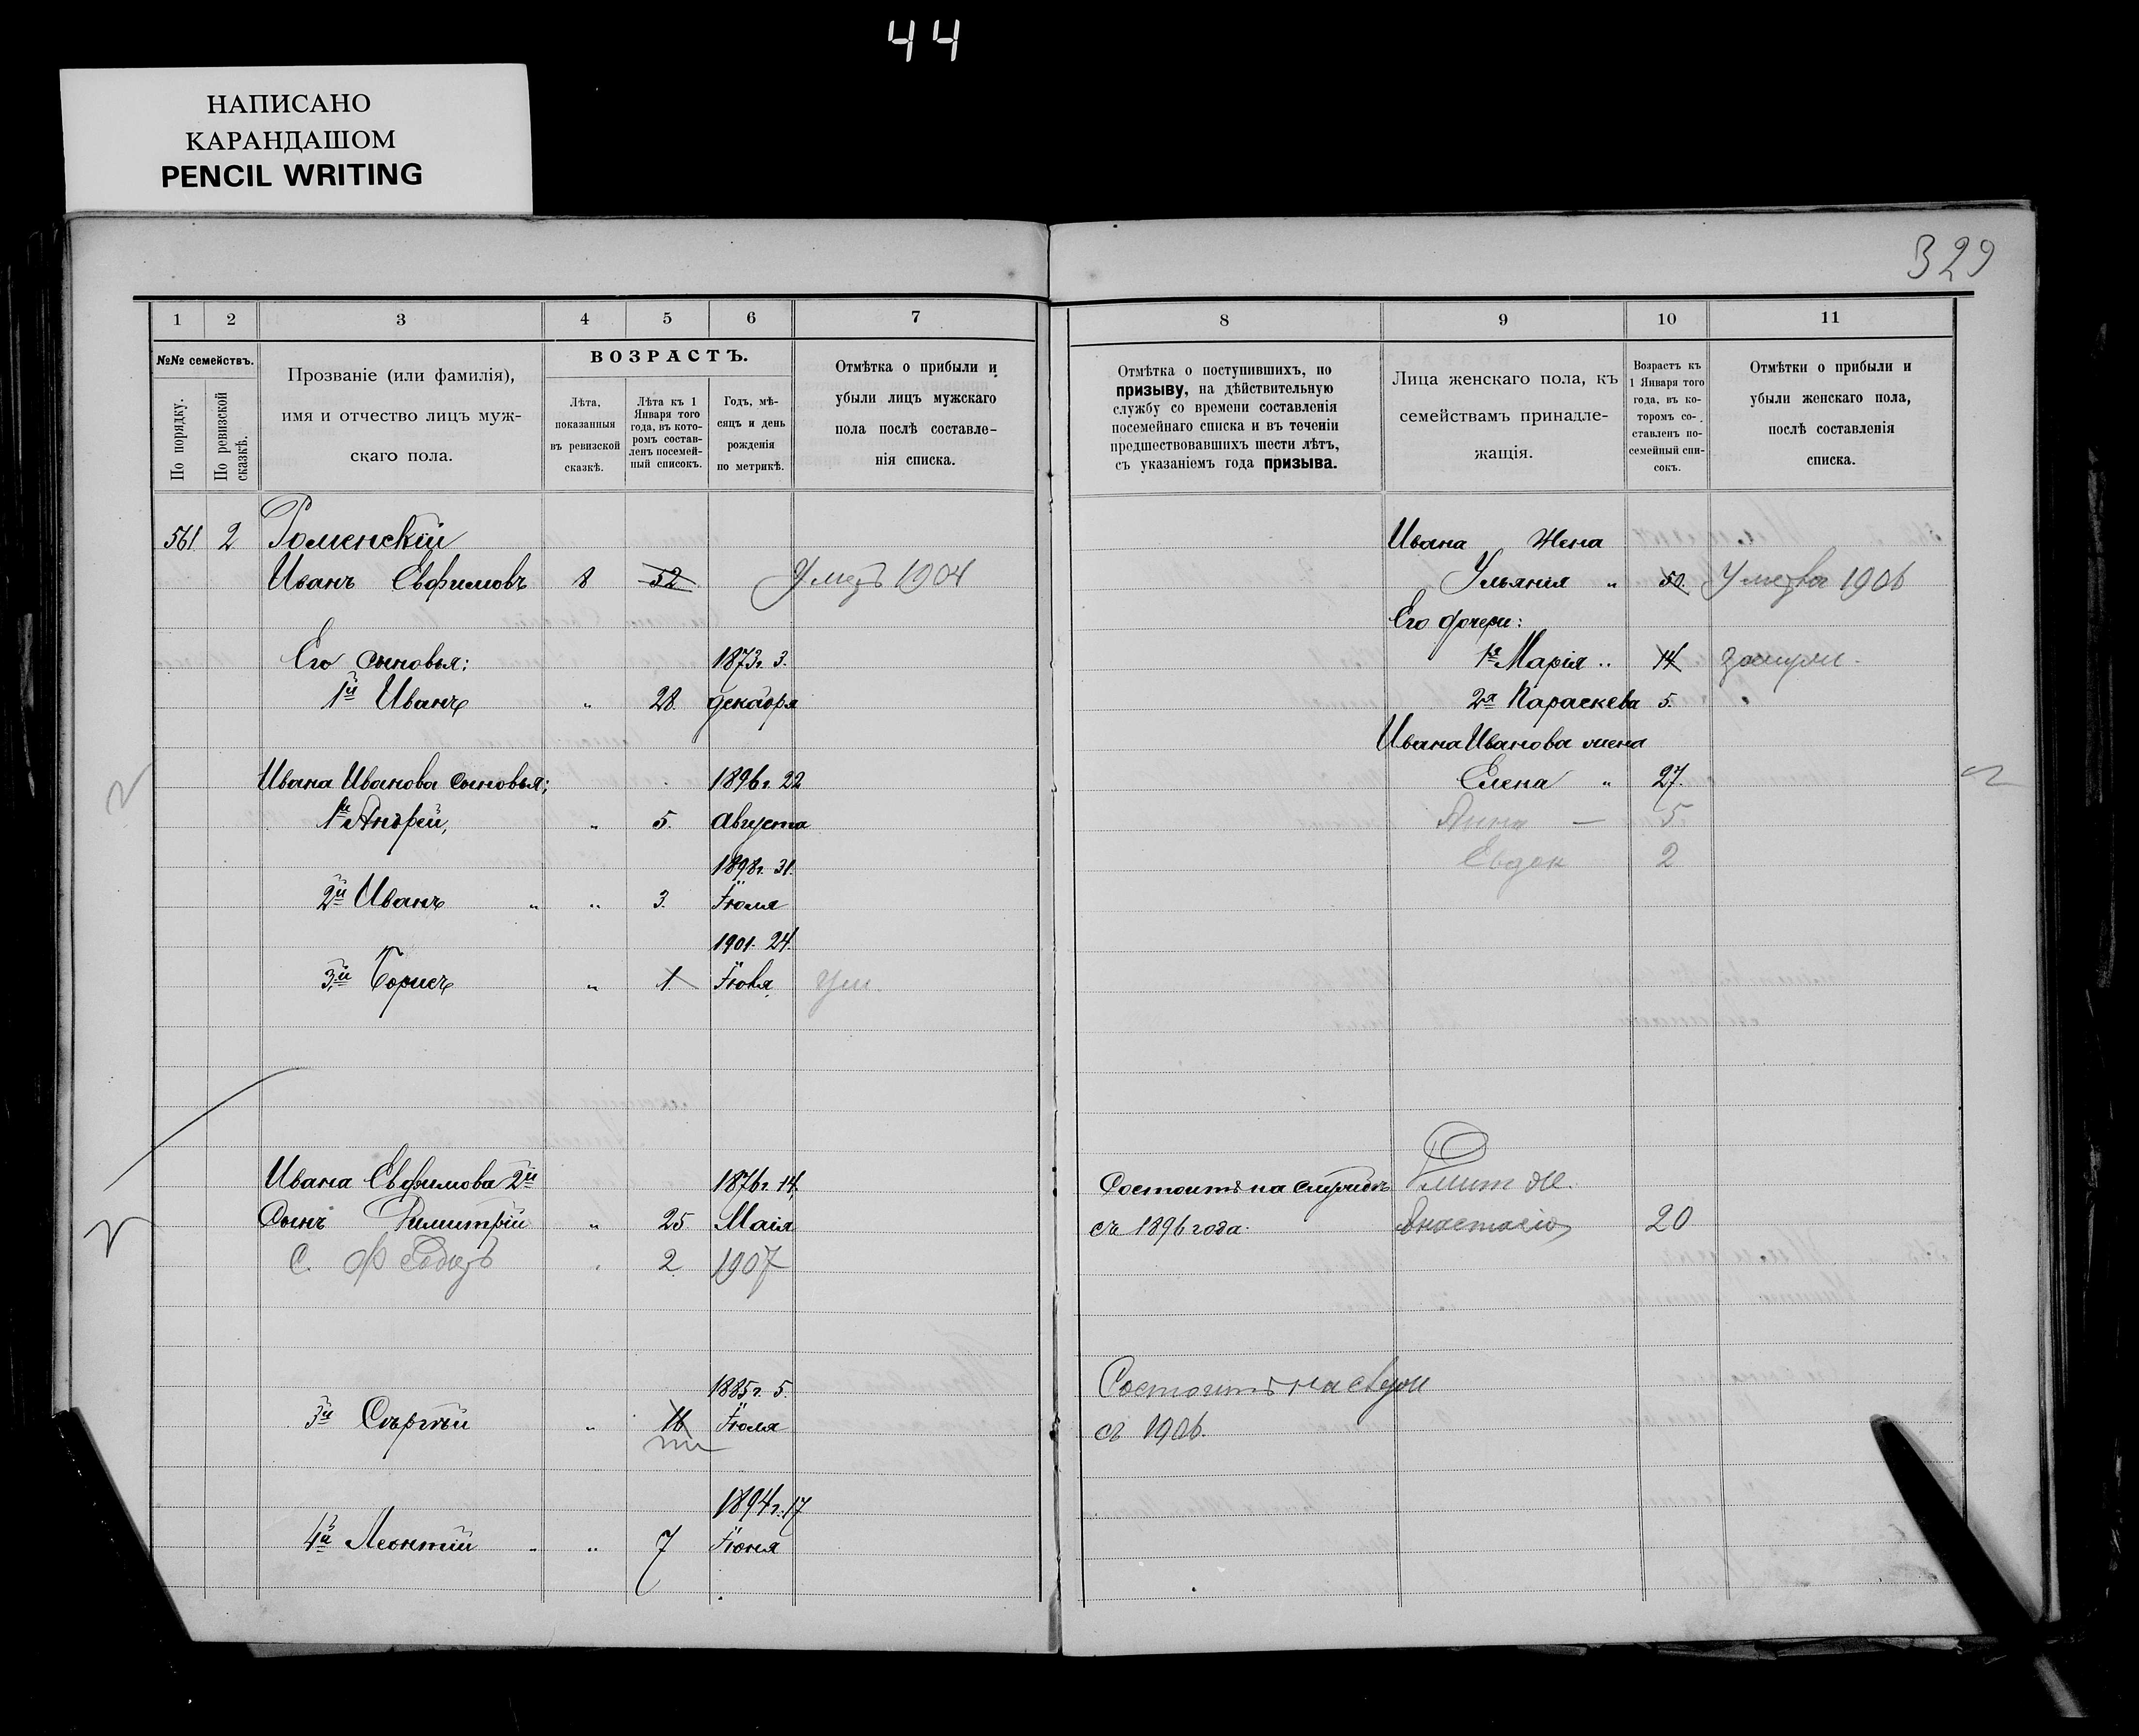 44
НАПИСАНО
КАРАНДАШОМ
PENCIL WRITING
329
1 2 3 4 5 6 7
№№ семействъ.
По порядку.
По ревизской сказкѣ.
Прозваніе (или фамилія),
имя и отчество лицъ муж-
скаго пола.
ВОЗРАСТЪ.
Лѣта,
показанныя
въ ревизской
сказкѣ.
Лѣта къ 1
Января того
года, въ кото-
ромъ состав-
ленъ посемей-
ный списокъ.
Годъ, мѣ-
сяцъ и день
рожденія
по метрикѣ.
Отмѣтка о прибыли и
убыли лицъ мужскаго
пола послѣ составле-
нія списка.
561 2 Роменскій
Иванъ Евфимовъ 8 52 Умеръ 1904
Его сыновья: 1873г. 3.
1й Иванъ " 28. декабря
Ивана Иванова сыновья; 1896г. 22
1й Андрей, " 5. Августа
1898г. 31.
2й Иванъ " " 3. Іюля
1901. 24.
3й Борисъ " 1. Ум.
Ивана Евфимова 2й 1876г. 14.
Сынъ Димитрій " 25. Маія
С. Федоръ 2 1907
1885г. 5.
3й Сергѣй " 16 Іюля
1894г. 17
4й Леонтій " " 7 Іюня
8 9 10 11
Отмѣтка о поступившихъ, по
призыву, на дѣйствительную
службу со времени составленія
посемейнаго списка и въ теченіи
предшествовавшихъ шести лѣтъ,
съ указаніемъ года призыва.
Лица женскаго пола, къ
семействамъ принадле-
жащія.
Возрастъ къ
1 Января того
года, въ ко-
торомъ со-
ставленъ по-
семейный спи-
сокъ.
Отмѣтки о прибыли и
убыли женскаго пола,
послѣ составленія
списка.
Ивана Жена
Ульянія " 50. Умерла 1906
Его дочери:
1я Марія " 14 замуж.
2я Параскева 5.
Ивана Иванова жена
Елена " 27.
Анна — 5
Евдок 2
Состоитъ на службѣ Дмит ж.
съ 1896 года. Анастасія 20
Состоитъ на служ
съ 1906.